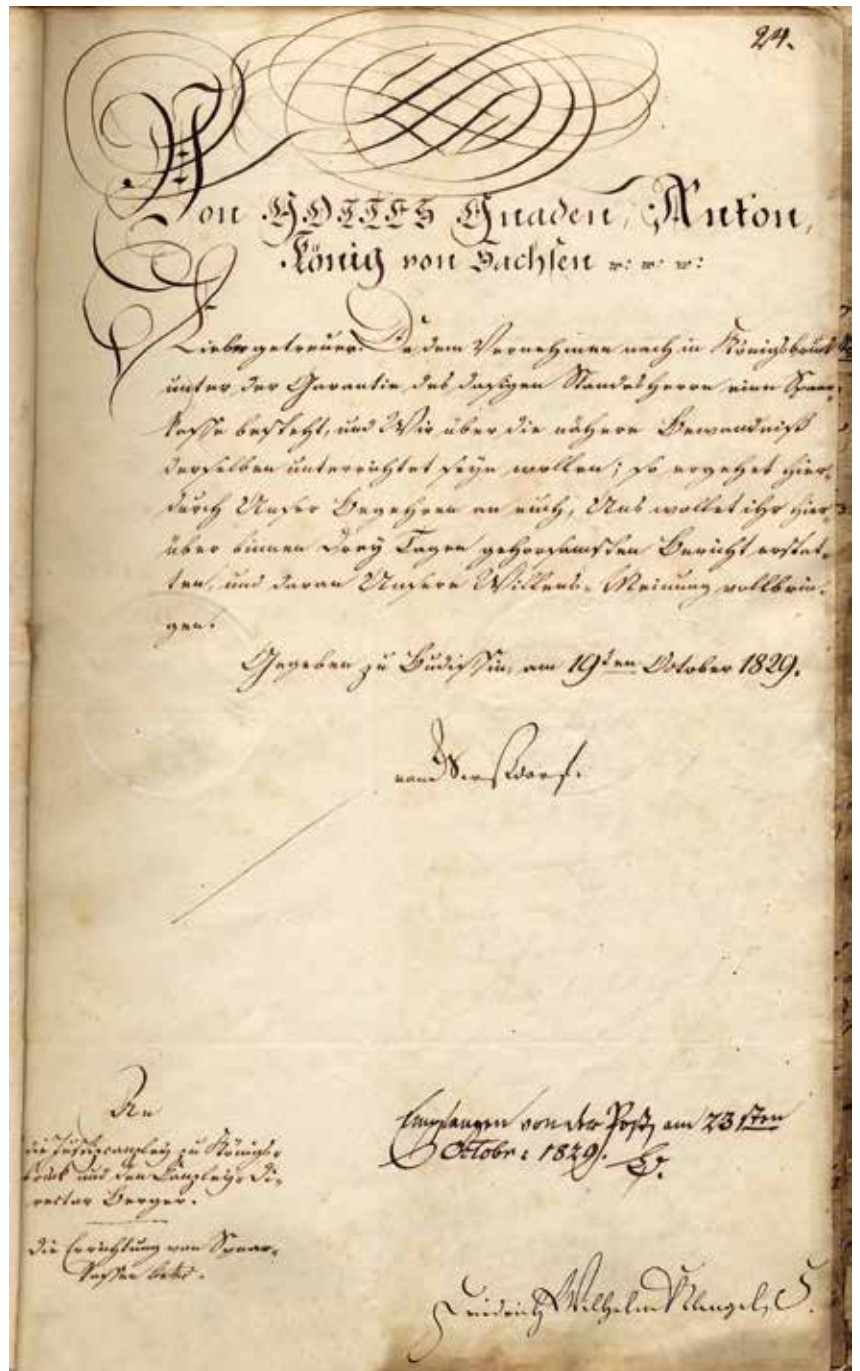 24.
Von GOTTES Gnaden, Anton,
König von Sachsen ꝛc: ꝛc: ꝛc:
Lieber getreuer. Da dem Vernehmen nach in Königsbrück
unter der Garantie des dasigen Standesherrn eine Spaar-
kasse besteht, und Wir über die nähere Bewandniß
derselben unterrichtet seyn wollen; so ergehet hier-
durch Unser Begehren an euch, Uns wollet ihr hier-
über binnen Drey Tagen gehorsamsten Bericht erstat-
ten, und daran Unsere Willens-Meinung vollbrin-
gen.
Gegeben zu Budissin, am 19ten October 1829.
von Gersdorf.
An
die Justizcanzley zu Königs-
brück und den Canzley-Di-
rector Berger.
Die Errichtung von Spaar-
kassen betr.
Empfangen von der Post, am 23sten
Octobr: 1829.
Friedrich Wilhelm